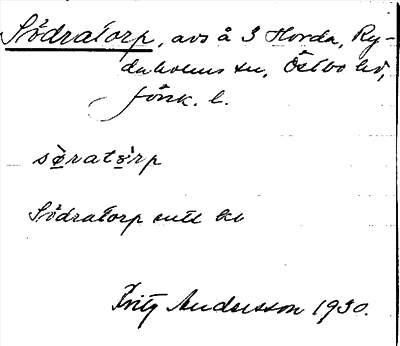 Södratorp, avs å 3 Horda, Ry-
daholms sn, Östbo hd,
Jönk. l.
sø̀ratɵ̀rp
Södratorp enl
Fritz Andersson 1930.